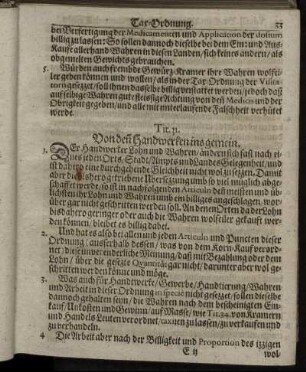 Tax-Ordnung. 33
bei Verfertigung der Medicamenten und Application der dosium
billig zu lassen: So sollen dannoch dieselbe bei dem Ein- und Aus-
Kauffe allerhand Wahren in diesen Landen, sich keines andern, als
obgemelten Gewichts gebrauchen.
5. Würden auch frembde Gewürz-Kramer ihre Wahren wolfei-
ler geben können und wollen, als in der Tax Ordnung der
gesetzet, soll ihnen dasselbe billig verstattet werden, jedoch daß
auf selbige Wahren gute fleissige Achtung von deß Medico und der
Obrigkeit gegeben, und alle mit einlauffende Falschheit verhütet
werde.
Tit. 31.
Von den Handwerken ins gemein.
1. Der Handwerker Lohn und Wahren, ändern sich fast nach ei-
nes jeden Orts, Stadt, Ampts und Landes Gelegenheit, und
ist dahero eine durchgehende Gleichheit nicht wol zu setzen. Damit
aber die dahero geriethene Übersetzung und so viel müglich abge-
schaffet werde, so ist in nachfolgenden Articuln des meisten und üb-
lichsten Lohns und Wahren halben ein billiges angeschlagen, wor-
über alle nicht geschritten werden soll. An denen Orten da der Lohn
bis dahero geringer oder auch die Wahren wolfeiler gekauft wer-
den können, bleibet es billig dabei.
2. Und hat es also bei allen und jeden Articuln und Puncten dieser
Ordnung (ausserhalb dessen, was von dem Korn-Kauf verord-
net) diese unveränderliche Meinung, daß mit Bezahlung oder dem
Lohn, über die gesetzte Quantität gar nicht, darunter aber wol ge-
schritten werden könne und möge.
3. Was auch für Handwerke, Gewerbe, Handtierung, Wahren
und Arbeit in dieser Ordnung in specie nicht gesetzet, sollen dieselbe
dannoch gehalten seyn, die Wahren nach dem bescheinigten Ein-
kauf, Unkosten und Gewinn, auf Masse, wie Tit. 24. von Kramern
und Handels Leuten verordnet, taxiren zu lassen, zu verkaufen und
zu verhandeln.
4 Die Arbeit aber nach der Billigkeit und Proportion des itzigen
E ij wol-